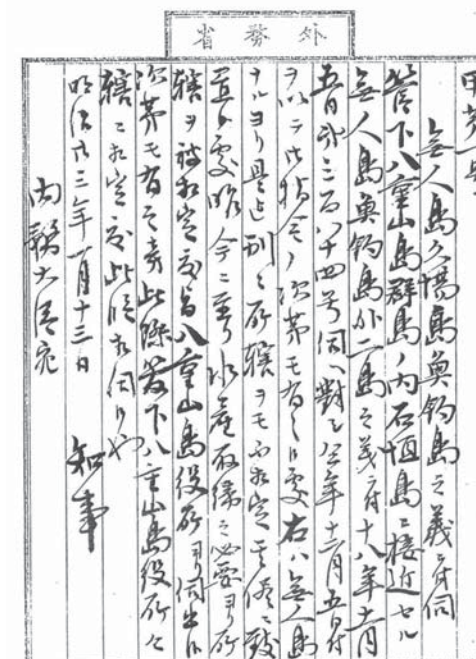 外務省
甲第一号
無人島久場島魚釣島之義ニ付伺
管下八重山島群島ノ内石垣島ニ接近セル
無人島魚釣島外二島之義ニ付十八年十一月
五日第三百八十四号伺ヘ對シ仝年十二月五日付
ヲ以テ御指令ノ次第モ有之候處右ハ無人島
ナルヨリ是迄別ニ所轄ヲモ不相定其儘ニ致
置候處昨今ニ至リ水産取締之必要ヨリ所
轄ヲ被相定度旨八重山島役所ヨリ伺出候
次第モ有之旁此際管下八重山島役所々
轄ニ相定度此段相伺候也
明治廿三年一月十三日
知事
内務大臣宛